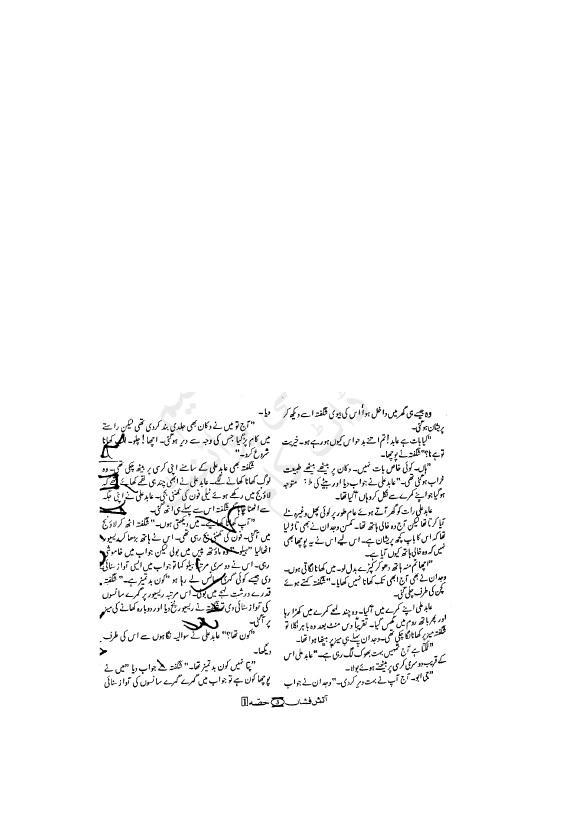 وہ جیسے ہی گھر میں داخل ہوا اس کی بیوی شگفتہ اسے دیکھ کر
پریشان ہو گئی۔
"کیا بات ہے عابد! تم اتنے بدحواس کیوں ہو رہے ہو۔ خیریت
تو ہے نا؟" شگفتہ نے پوچھا۔
"ہاں۔ کوئی خاص بات نہیں۔ دکان پر بیٹھے بیٹھے طبیعت
خراب ہو گئی تھی۔" عابد علی نے جواب دیا اور بیٹے کی متوجہ
ہو گیا جو اپنے کمرے سے نکل کر وہاں آ گیا تھا۔
عابد علی رات کو گھر آتے ہوئے عام طور پر کوئی پھل وغیرہ لے
آیا کرتا تھا لیکن آج وہ خالی ہاتھ تھا۔ کمسن وجدان نے بھی تاڑ لیا
تھا کہ اس کا باپ کچھ پریشان ہے۔ اس لیے اس نے یہ پوچھا بھی
نہیں کہ وہ خالی ہاتھ کیوں آیا ہے۔
"اچھا تم منہ ہاتھ دھو کر کپڑے بدل لو۔ میں کھانا لگاتی ہوں۔
وجدان نے بھی آج ابھی تک کھانا نہیں کھایا۔" شگفتہ کہتے ہوئے
کچن کی طرف چلی گئی۔
عابد علی اپنے کمرے میں آ گیا۔ وہ چند لمحے کمرے میں کھڑا رہا
اور پھر باتھ روم میں گھس گیا۔ تقریباً دس منٹ بعد وہ باہر نکلا تو
شگفتہ میز پر کھانا لگا چکی تھی۔ وجدان پہلے ہی میز پر بیٹھا ہوا تھا۔
"لگتا ہے آج تمہیں بہت بھوک لگ رہی ہے۔" عابد علی اس
کے قریب دوسری کرسی پر بیٹھتے ہوئے بولا۔
"جی ابو۔ آج آپ نے بہت دیر کر دی۔" وجدان نے جواب
دیا۔
"آج تو میں نے دکان بھی جلدی بند کر دی تھی لیکن راستے
میں کام پڑ گیا جس کی وجہ سے دیر ہو گئی۔ اچھا! چلو۔ کھانا
شروع کرو۔"
شگفتہ بھی عابد علی کے سامنے اپنی کرسی پر بیٹھ چکی تھی۔ وہ
لوگ کھانا کھانے لگے۔ عابد علی نے ابھی چند ہی لقمے کھائے تھے کہ
لاؤنج میں رکھے ہوئے ٹیلی فون کی گھنٹی بجی۔ عابد علی نے اپنی جگہ
سے اٹھنا چاہا لیکن شگفتہ اس سے پہلے ہی اٹھ گئی۔
"آپ کھانا کھائیے۔ میں دیکھتی ہوں۔" شگفتہ اٹھ کر لاؤنج
میں آ گئی۔ فون کی گھنٹی بج رہی تھی۔ اس نے ہاتھ بڑھا کر ریسیور
اٹھا لیا "ہیلو" وہ ماؤتھ پیس میں بولی لیکن جواب میں خاموشی
رہی۔ اس نے دوسری مرتبہ ہیلو کہا تو جواب میں ایسی آواز سنائی
دی جیسے کوئی گہری سانس لے رہا ہو "کون بدتمیز ہے۔" شگفتہ
قدرے درشت لہجے میں بولی۔ اس مرتبہ ریسیور پر گہرے سانسوں
کی آواز سنائی دی تو شگفتہ نے ریسیور پٹخ دیا اور دوبارہ کھانے کی میز
پر آ گئی۔
"کون تھا؟" عابد علی نے سوالیہ نگاہوں سے اس کی طرف
دیکھا۔
"پتا نہیں کون بدتمیز تھا۔" شگفتہ نے جواب دیا "میں نے
پوچھا کون ہے تو جواب میں گہرے گہرے سانسوں کی آواز سنائی
آتش فشاں 3 حصہ 1